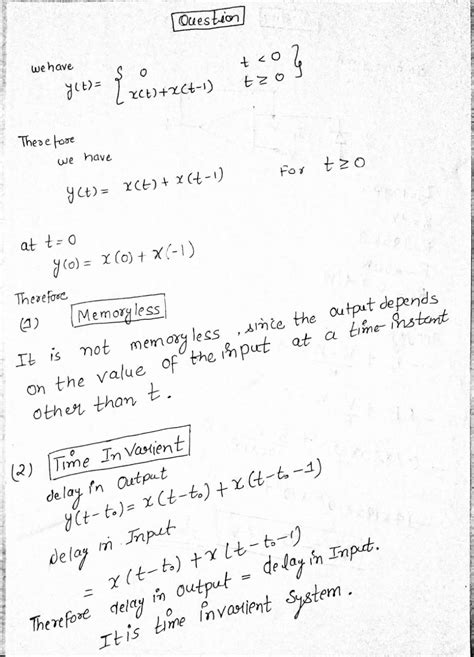 Question
we have
y(t) = { 0 t < 0
x(t)+x(t-1) t ≥ 0 }
Therefore
we have
y(t) = x(t) + x(t-1) For t ≥ 0
at t=0
y(0) = x(0) + x(-1)
Therefore
(1) Memoryless
It is not memoryless, since the output depends
on the value of the input at a time-instant
other than t.
(2) Time InVarient
delay in output
y(t-t₀) = x(t-t₀) + x(t-t₀-1)
Delay in Input
= x(t-t₀) + x(t-t₀-1)
Therefore delay in output = delay in Input.
It is time invarient System.